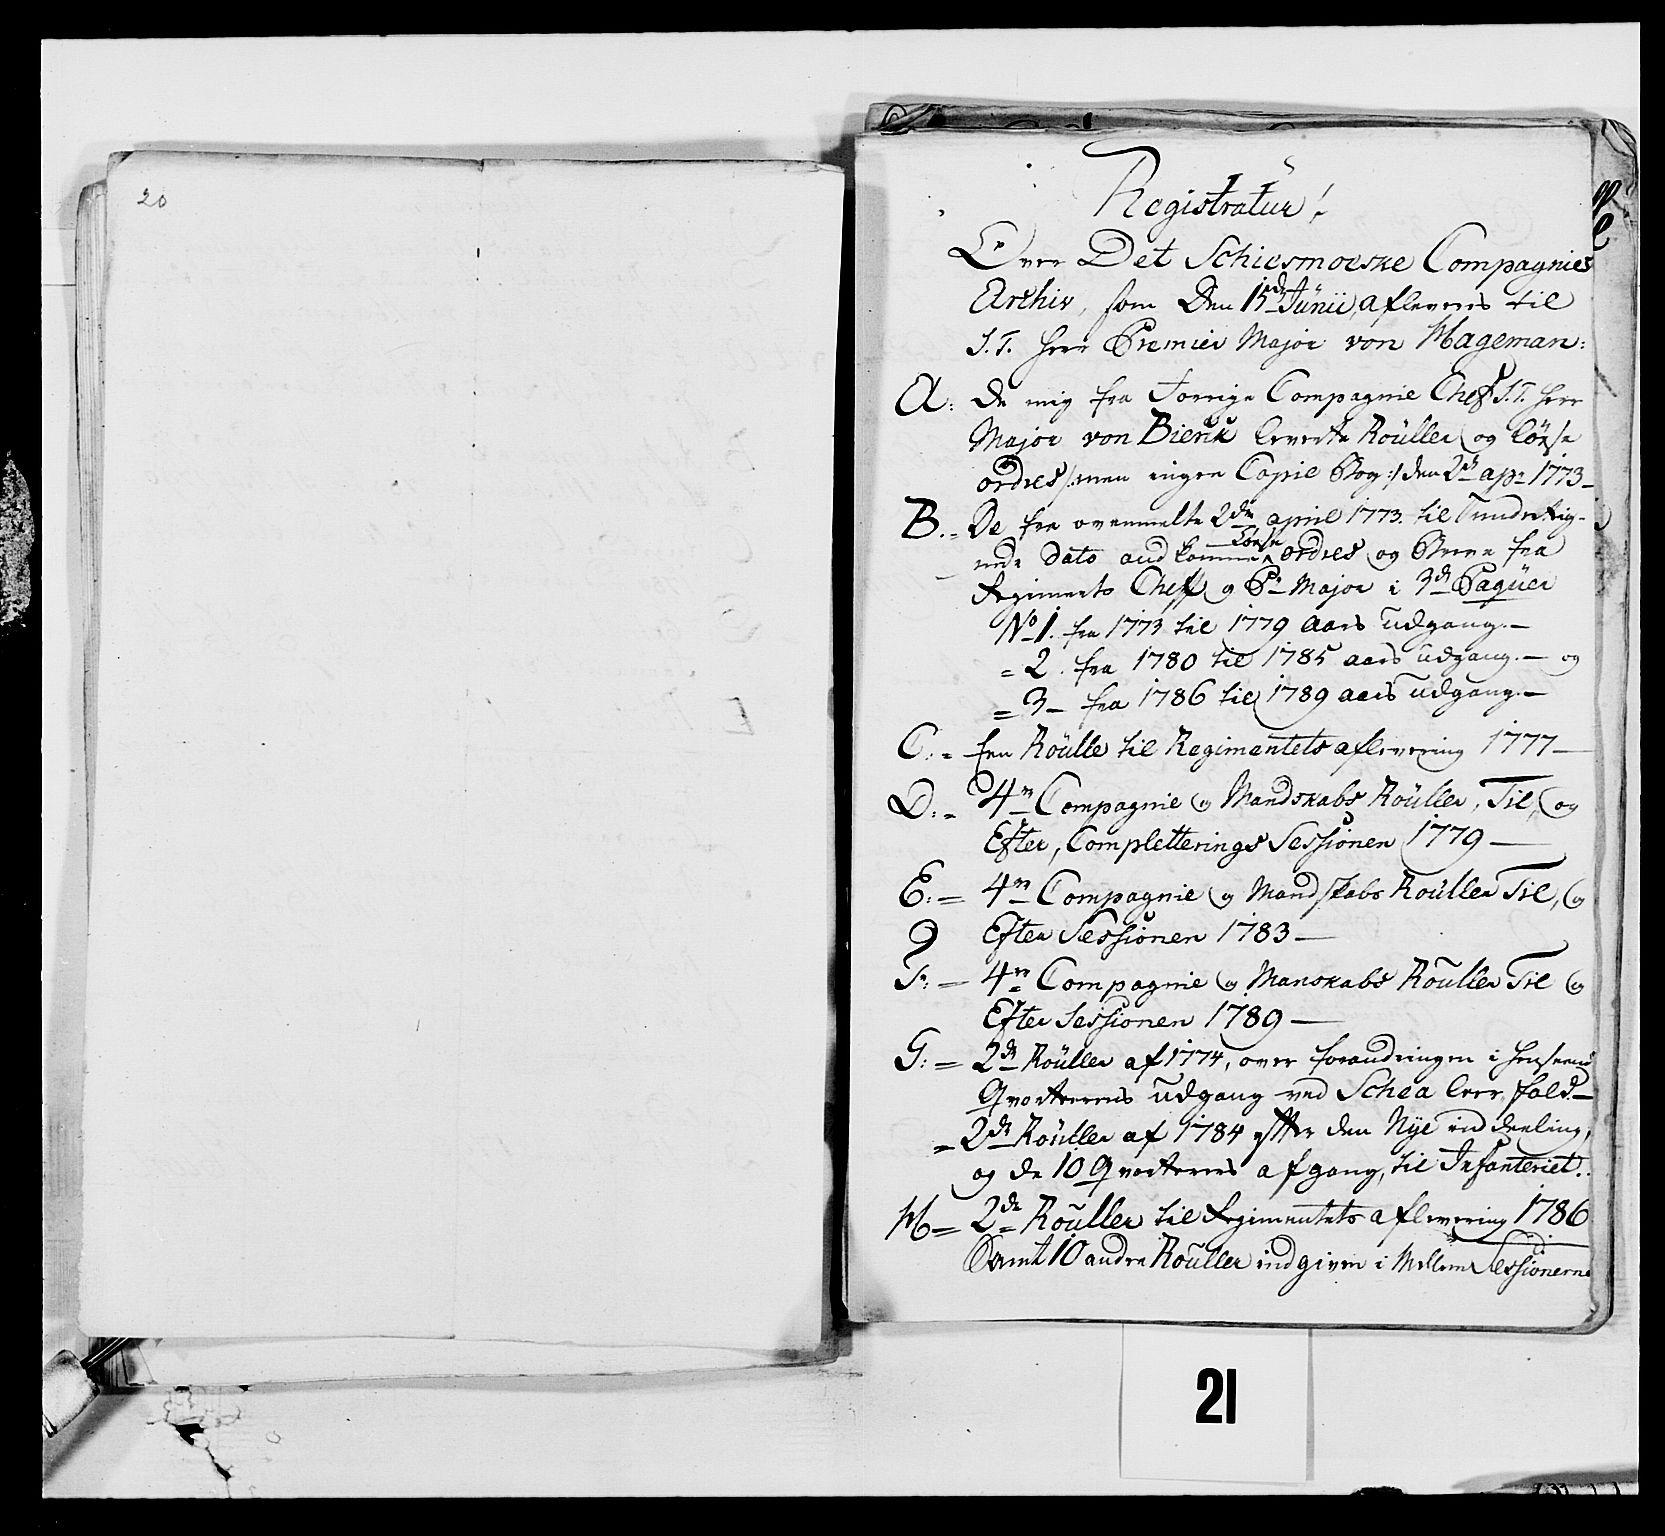 20
Registratur!
Over Det Schiesmoeske Compagnies
Archiv, som Den 15de Junii, afleveres til
S. T. Herr Premier Major von Hageman:
A: De mig fra Forrige Compagnie Chef S. T. Herr
Major von Bierck leverte Roüller og løse
ordres /: men ingen Copie Bog :/ den 2de ap: 1773 –
B. = De fra ovenmelte 2de april 1773 til Underteg-
nede dato ankomne løse ordres og Breve fra
Regiments Cheff og Pr Major i 3de Paqüer
No 1. fra 1773 til 1779 aars udgang. –
= 2. fra 1780 til 1785 aars udgang. – og
= 3 – fra 1786 til 1789 aars udgang. –
C: = Een Roülle til Regimentets aflevering 1777 –
D: = 4re Compagnie og Mandskabs Roüller, Til, og
Efter, Completterings Sessionen 1779 –
E: = 4re Compagnie og Mandskabs Roüller Til, og
Efter Sessionen 1783 –
F: – 4re Compagnie og Manskabs Roüller Til og
Efter Sessionen 1789 –
G: = 2de Roüller af 1774, over forandringen i Henseende
Qvarterers udgang ved Schea leer fald –
= 2de Roüller af 1784 efter den Nye inddeeling,
og de 10 Qvarterers afgang, til Infanteriet.
H = 2de Roüller til Regimentets aflevering 1786
Samt 10 andre Roüller indgiven i Mellem Sessionerne
21